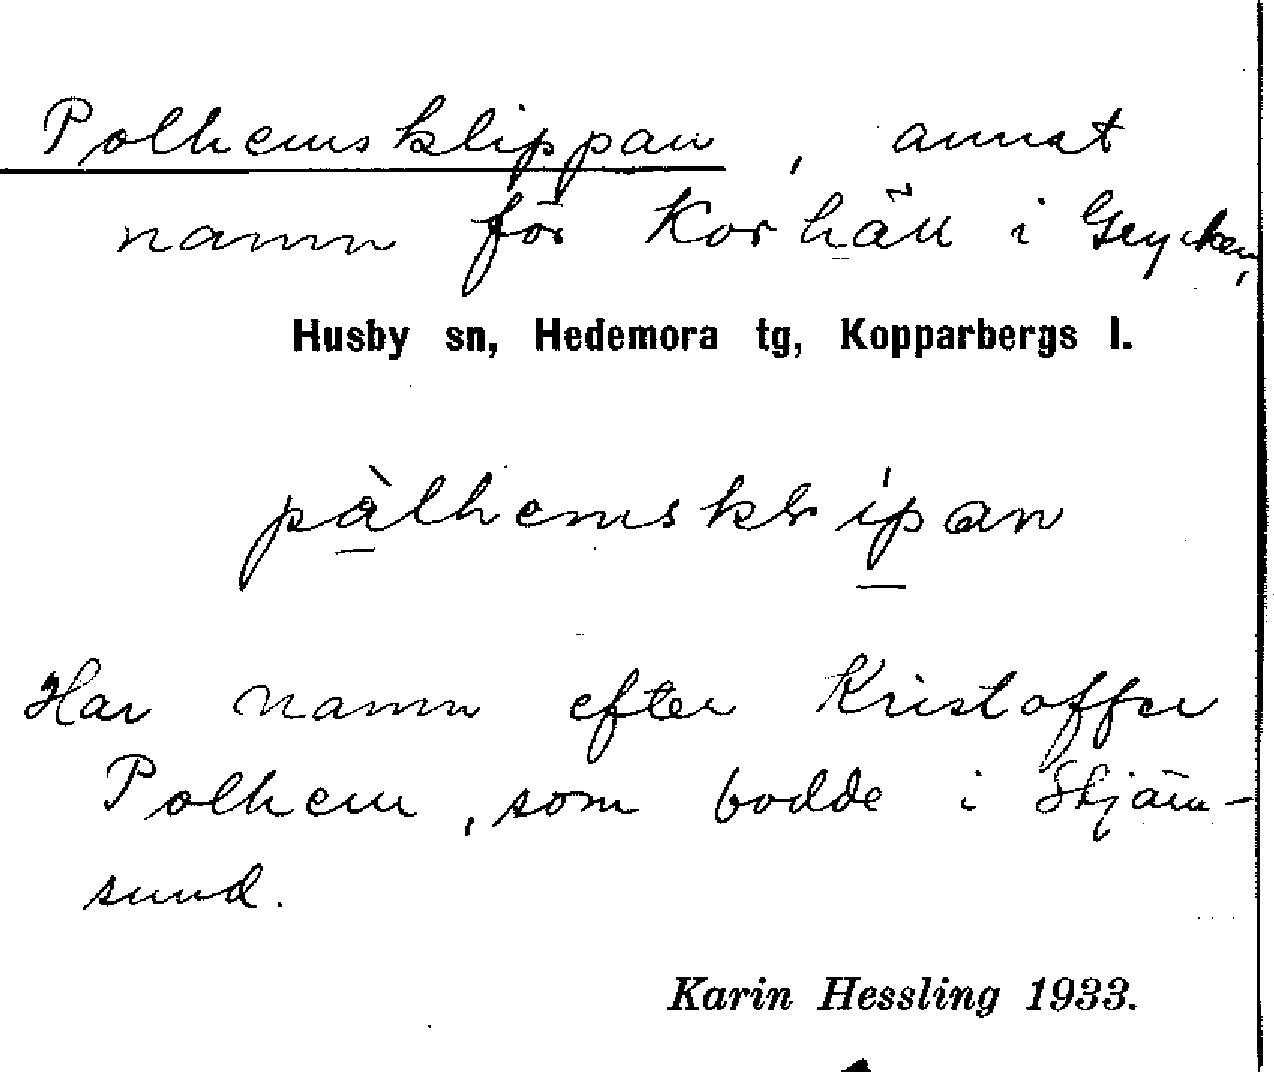 Polhemsklippan, annat
namn för Korhäll i Grycken,
Husby sn, Hedemora tg, Kopparbergs l.
pàlhemsklipan
Har namn efter Kristoffer
Polhem, som bodde i Stjärn-
sund.
Karin Hessling 1933.